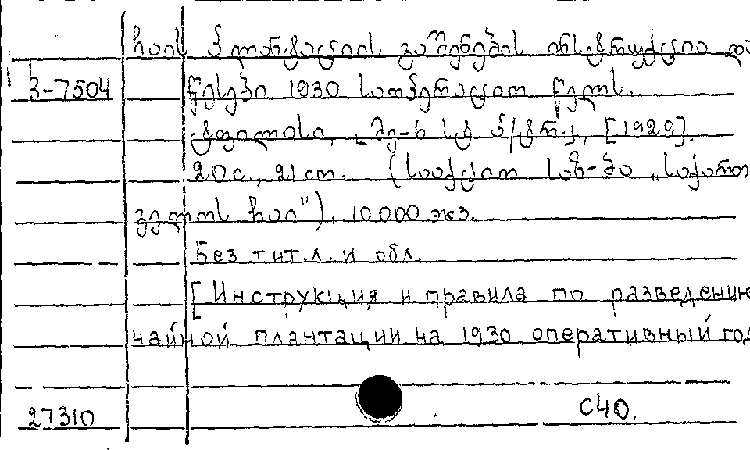 ჩაის პლანტაციის გაშენების ინსტრუქცია და
3-7504 წესები 1930 საოპერაციო წელს.
ტფილისი, [1929].
20 с., 21 cm. (სააქციო საზ-ბა „საქართ
ველოს ჩაი"), 10.000 экз.
Без тит. л. и обл.
[Инструкция и правила по разведению
чайной плантации на 1930 оперативный год
27310 С40.